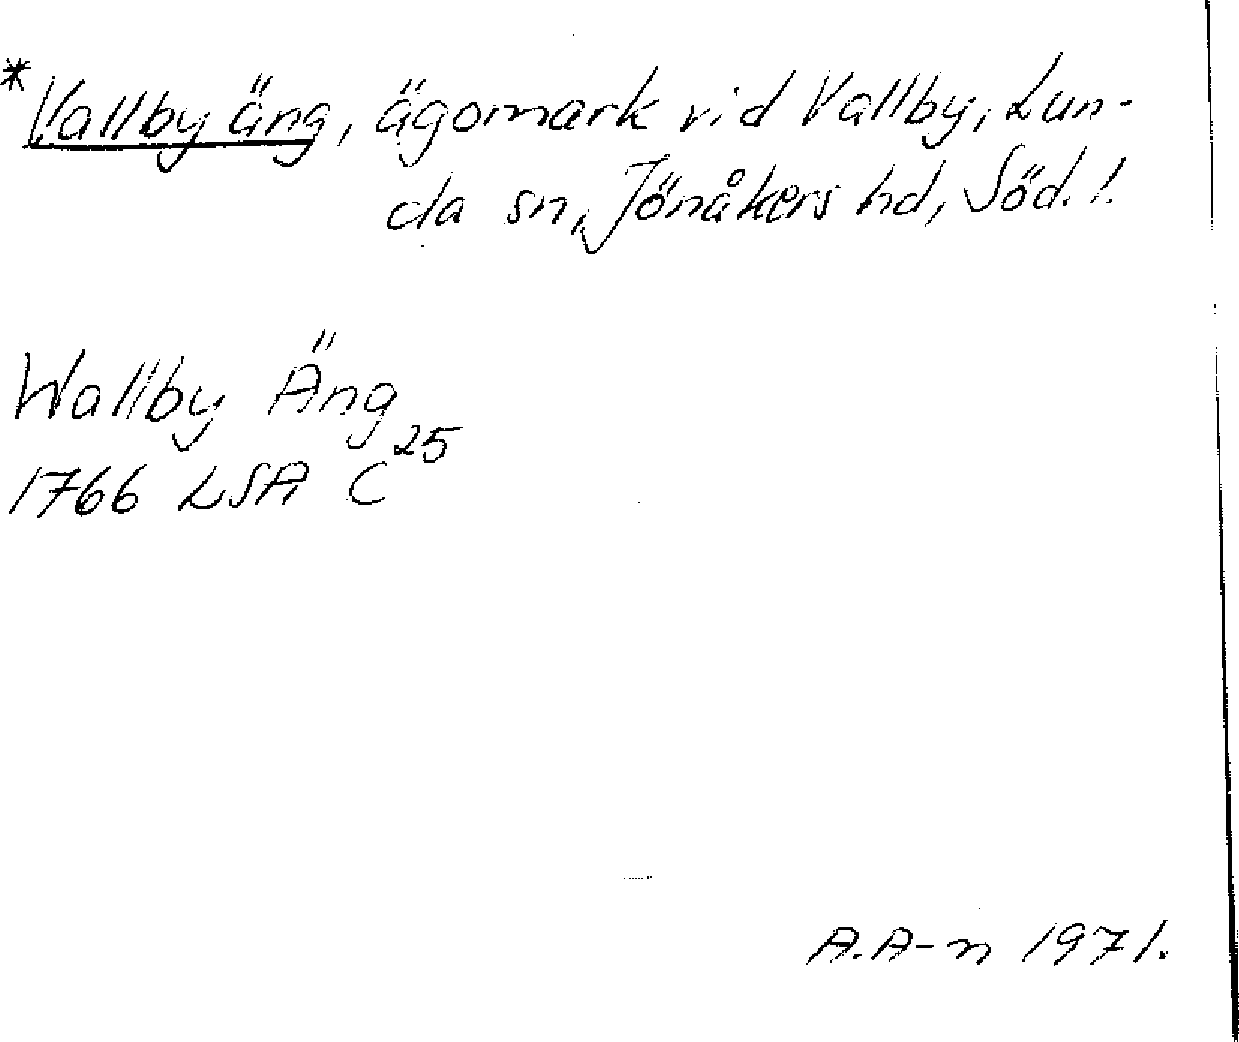 *Vallby äng, ägomark vid Vallby, Lun-
da sn, Jönåkers hd, Söd. l.
Wallby Äng
1766 LSA C25
A.A-n 1971.